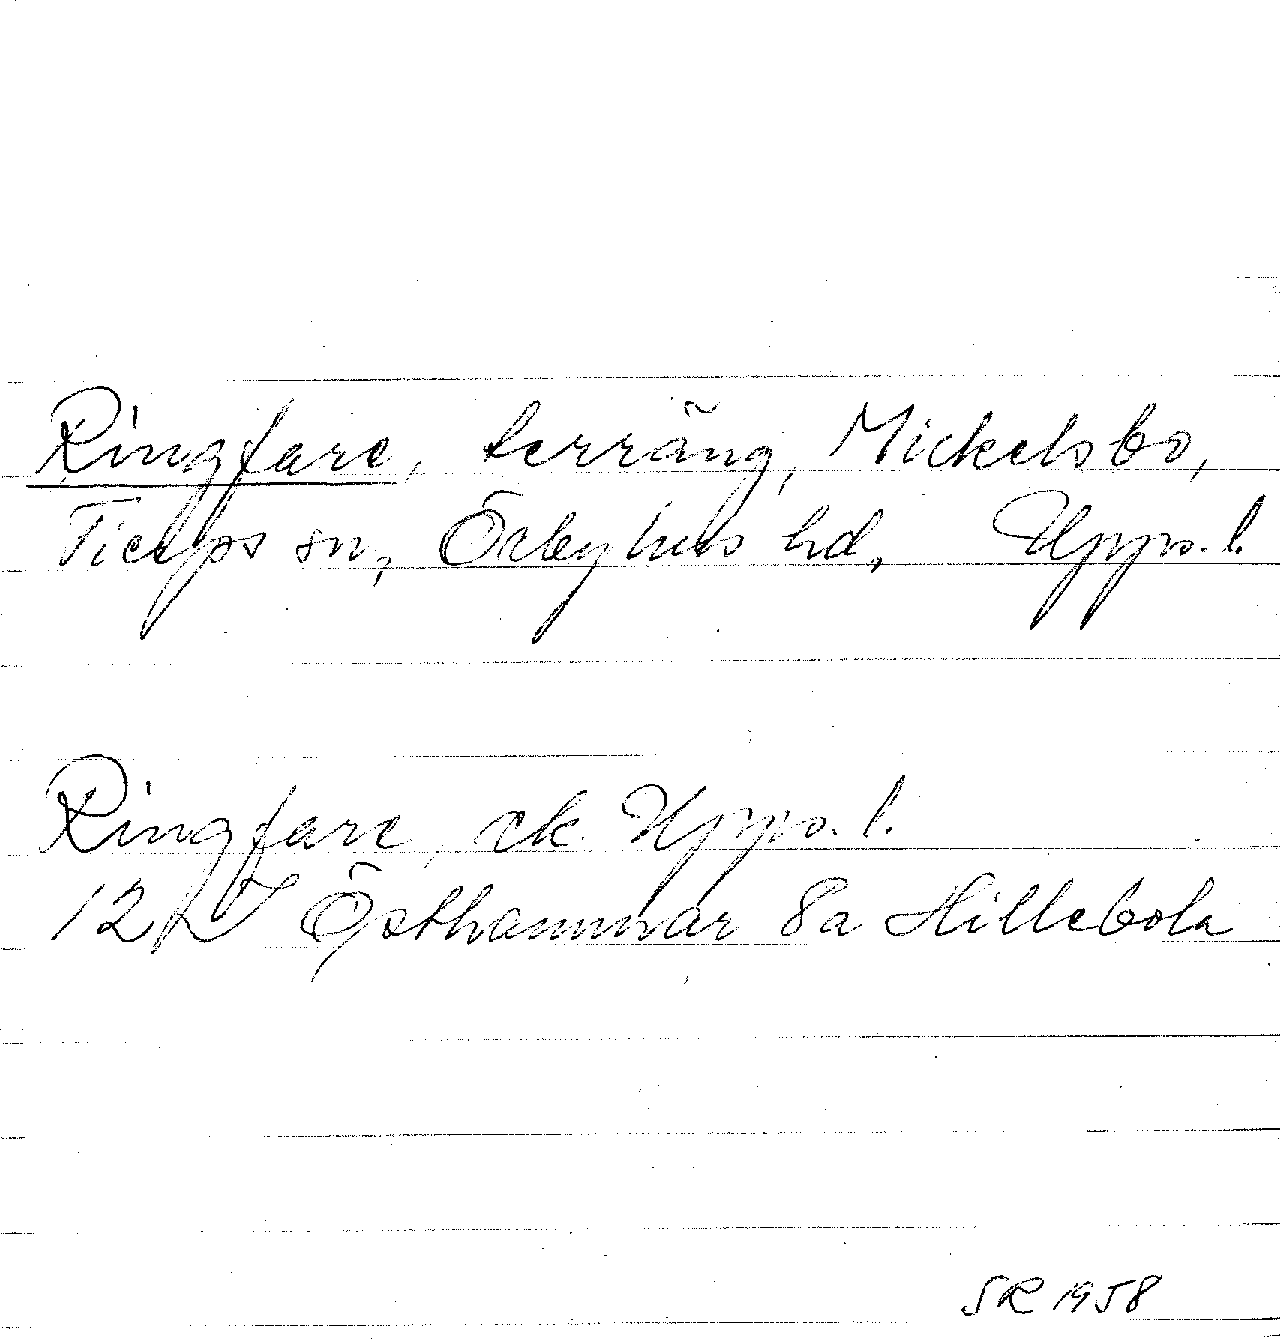 Ringfare, terräng, Mickelsbo,
Tierps sn, Örbyhus hd, Upps. l.
Ringfare, ek. Upps. l.
Östhammar 8a Hillebola
SR 1958